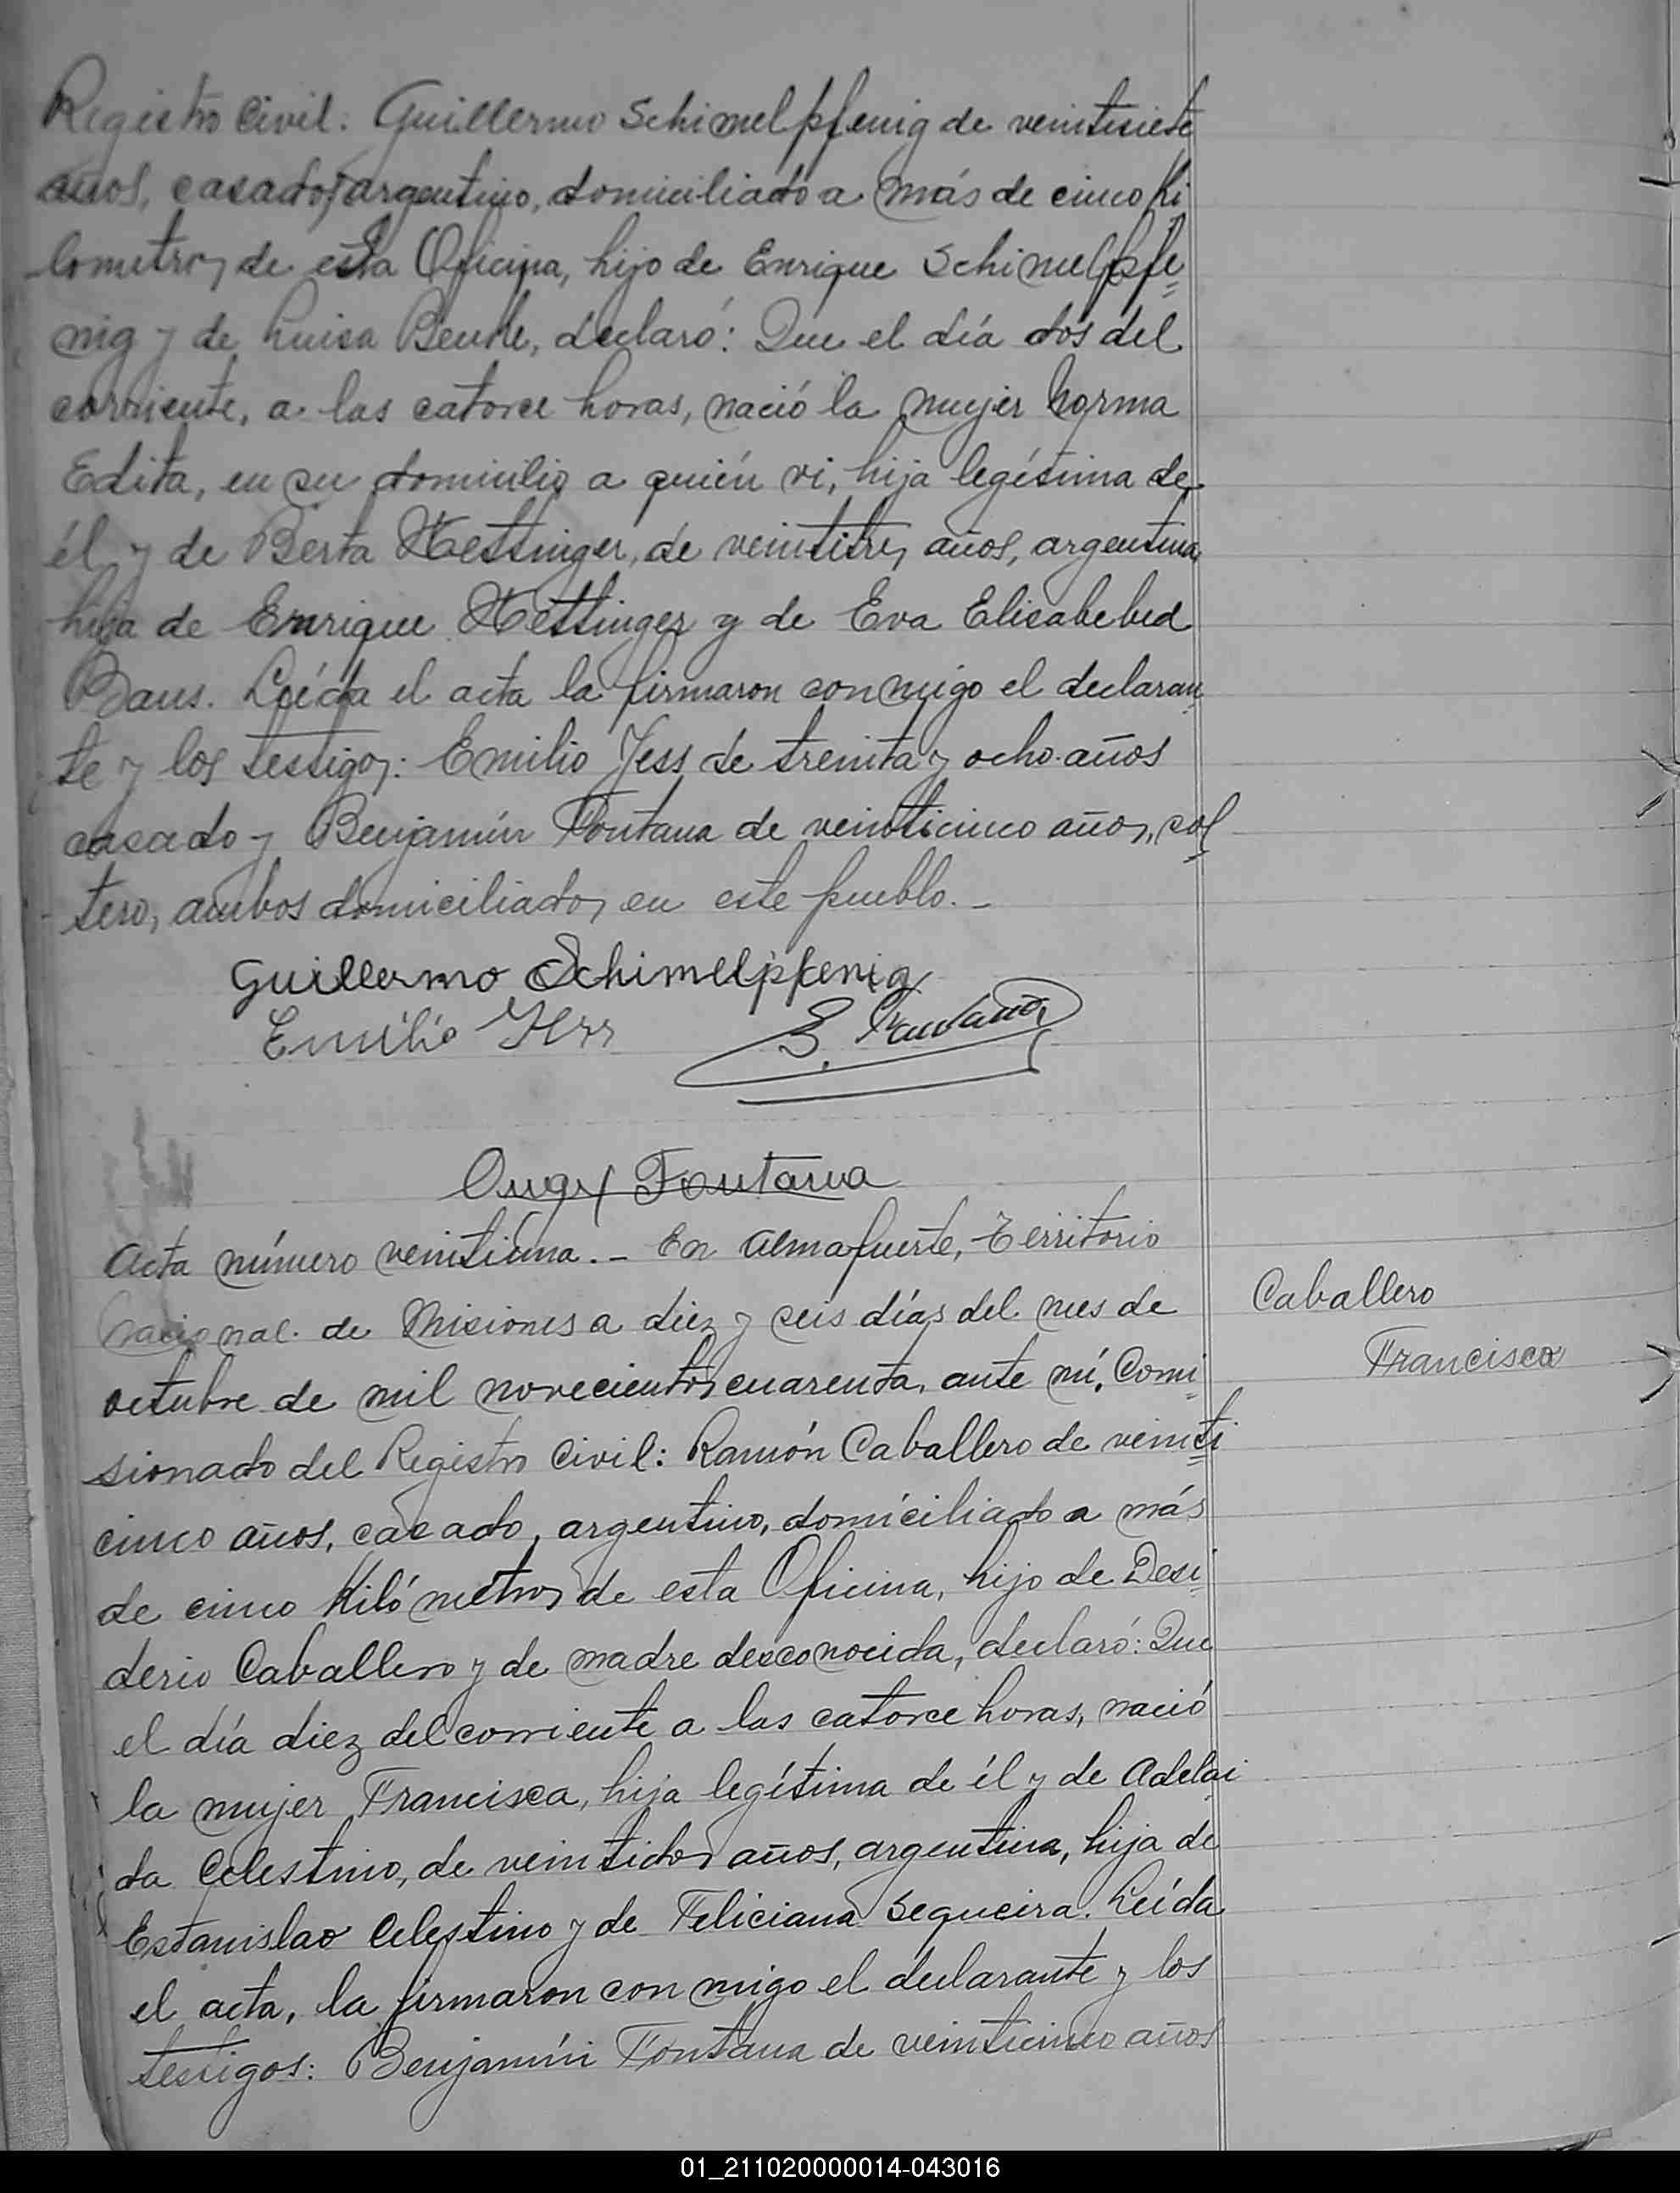 Registro Civil: Guillermo Schimelpfenig de veintisiete
años, casado, argentino, domiciliado a más de cinco ki
lometros de esta Oficina, hijo de Enrique Schimelpfe=
nig y de Luisa Beutle, declaró: Que el día dos del
corriente, a las catorce horas, nació la mujer Norma
Edita, en su domicilio a quién vi, hija legítima de
él y de Berta Hettinger, de veintitres años, argentina,
hija de Enrique Hettinger y de Eva Elisabebed
Baus. Leída el acta la firmaron conmigo el declaran
te y los testigos: Emilio Jess de treinta y ocho años
casado y Benjamín Fontana de veinticinco años, sol
tero, ambos domiciliados en este pueblo. -
Guillermo Schimelpfenig
Emilio
B. Fontana
Fontana
Acta número veintiuna. - En Almafuerte, Territorio
Nacional de Misiones a diez y seis días del mes de
octubre de mil novecientos cuarenta, ante mí, Comi=
sionado del Registro Civil: Ramón Caballero de veinti=
cinco años, casado, argentino, domiciliado a más
de cinco Kilómetros de esta Oficina, hijo de Desi=
derio Caballero y de madre desconocida, declaró: Que
el día diez del corriente a las catorce horas, nació
la mujer Francisca, hija legítima de él y de Adelai
da Celestino, de veintidos años, argentina, hija de
Estanislao Celestino y de Feliciana Sequeira. Leída
el acta, la firmaron conmigo el declarante y los
testigos: Benjamín Fontana de veinticinco años
Caballero
Francisca
01_211020000014-043016